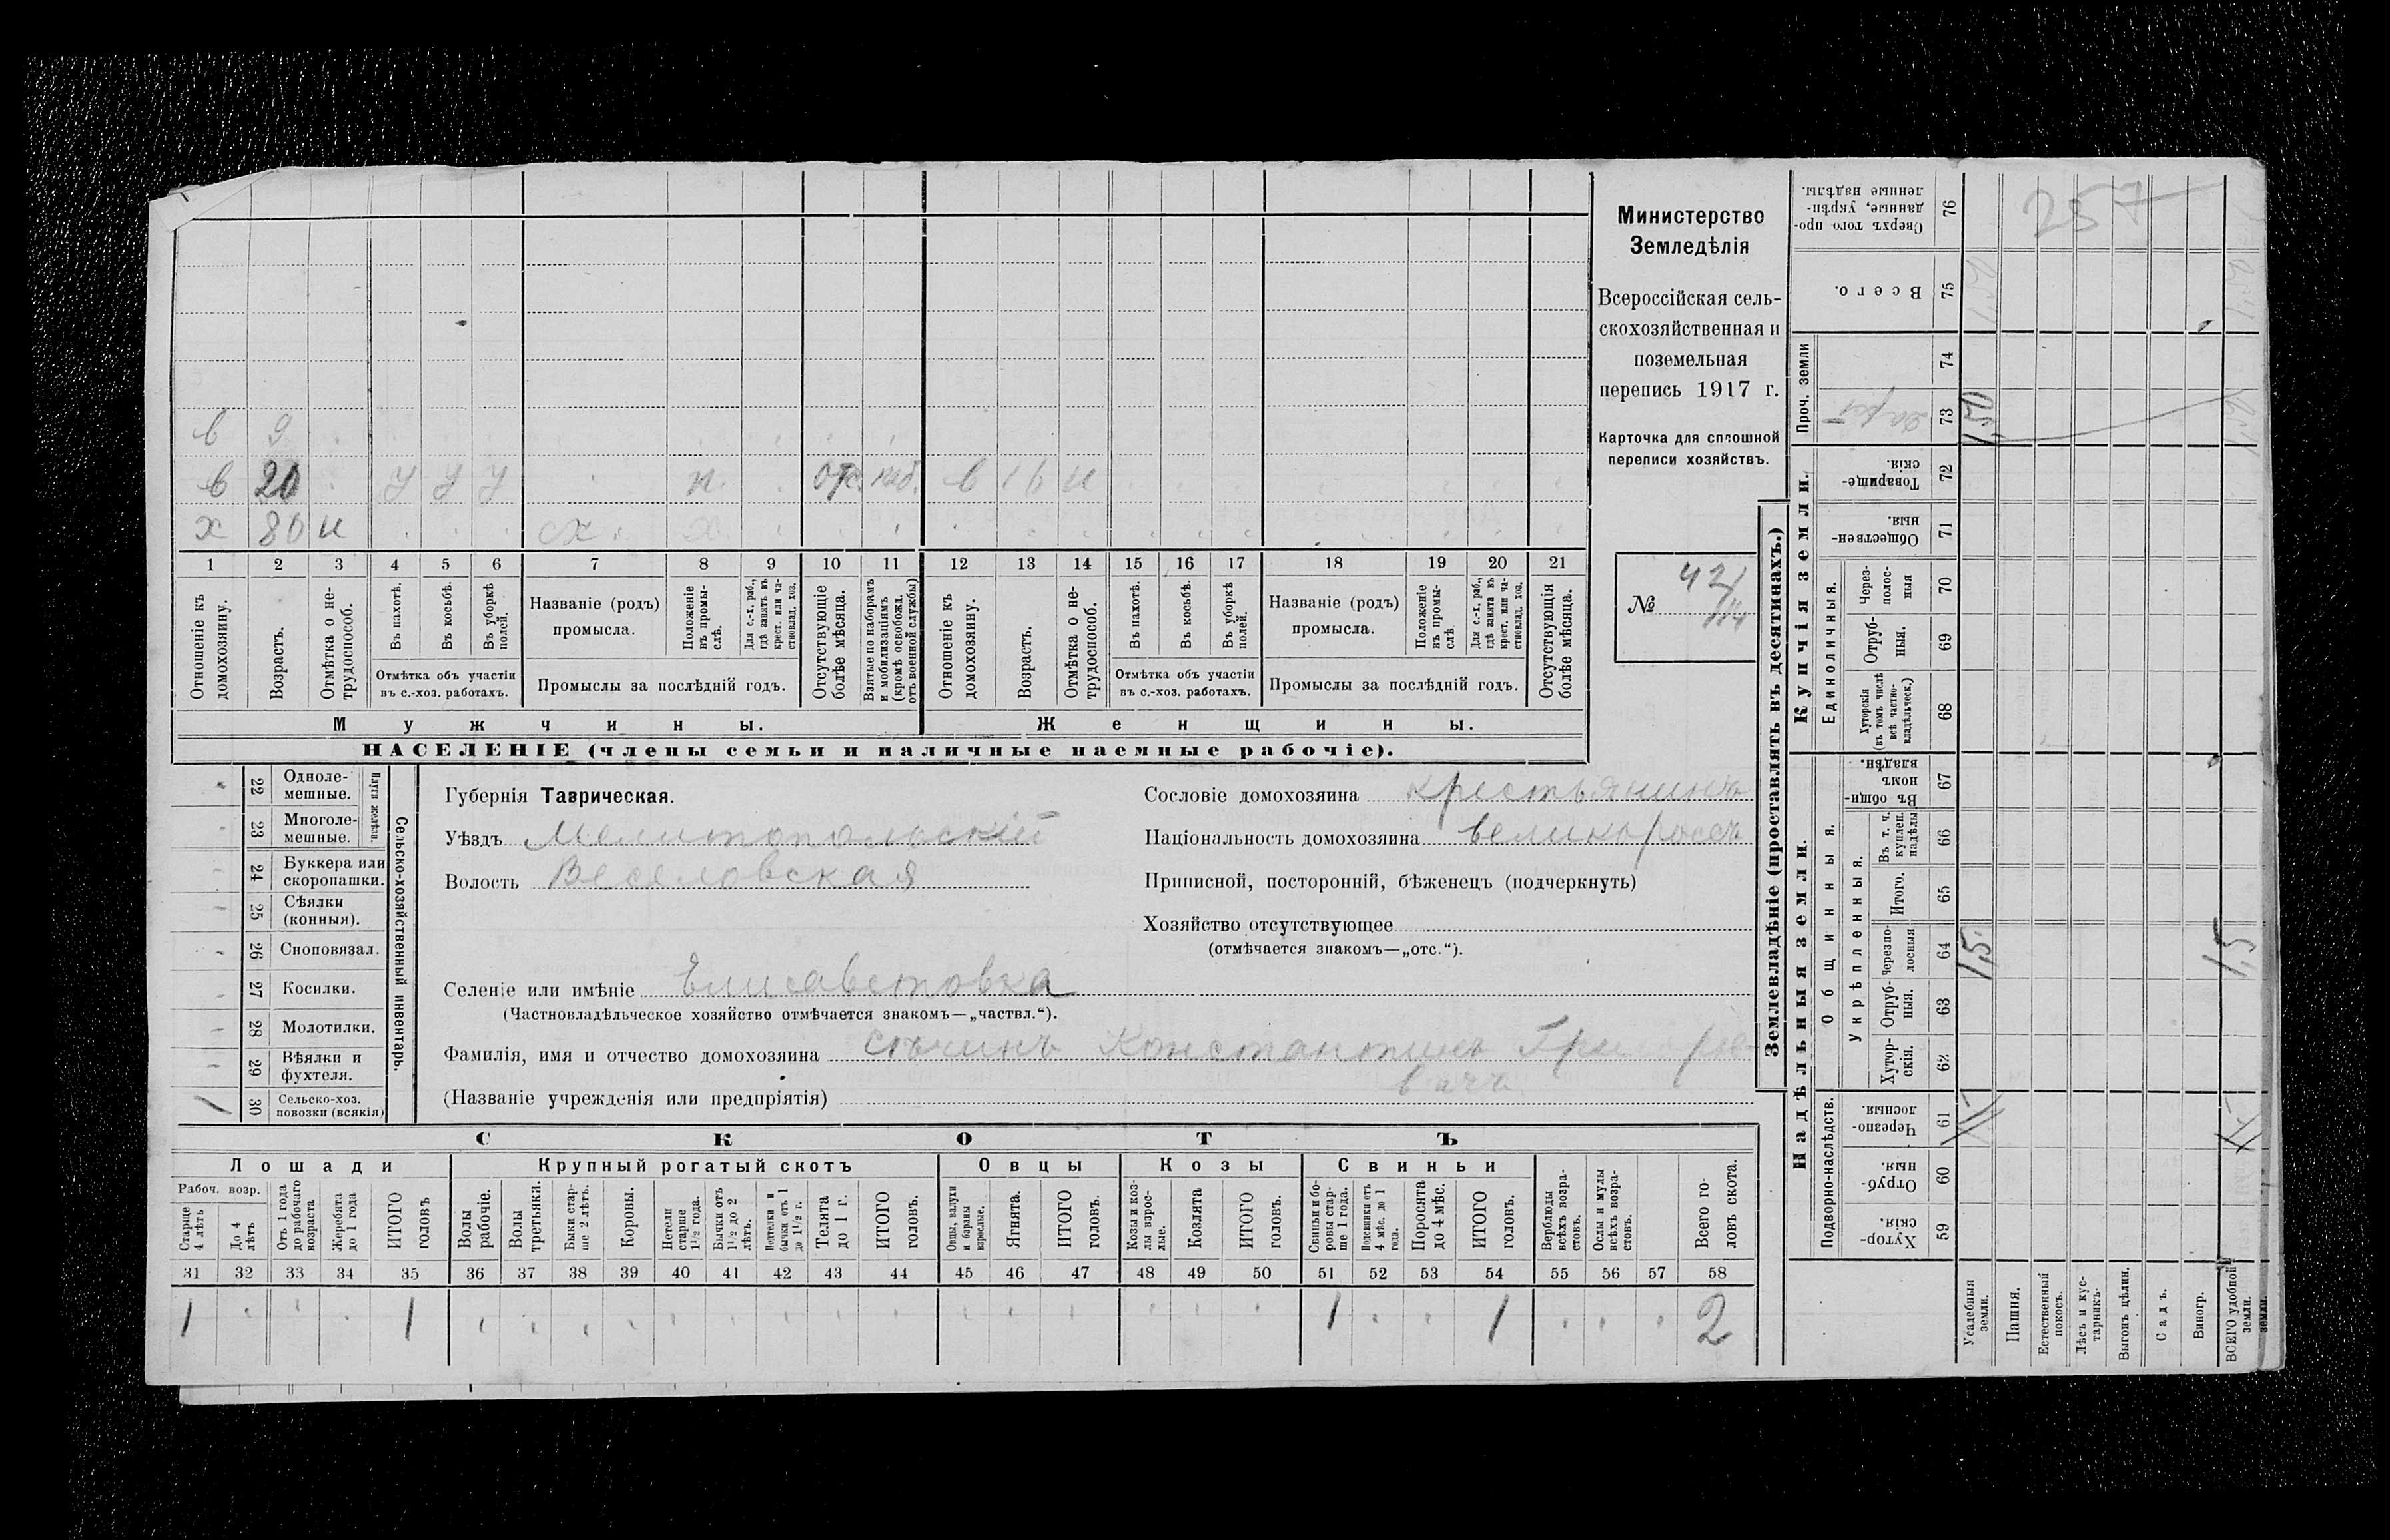 257
Министерство
Земледѣлія
Всероссійская сель-
скохозяйственная и
поземельная
перепись 1917 г.
Карточка для сплошной
переписи хозяйствъ.
№ 42/114
в 9
в 20 у у у п. отс. наб. в 16 н
х 80 н сх. х
1 2 3 4 5 6 7 8 9 10 11 12 13 14 15 16 17 18 19 20 21
Отношеніе къ домохозяину.
Возрастъ.
Отмѣтка о не-трудоспособ.
Въ пахотѣ.
Въ косьбѣ.
Въ уборкѣ полей.
Отмѣтка объ участіи
въ с.-хоз. работахъ.
Названіе (родъ)
промысла.
Положеніе въ промы-слѣ.
Для с.-х. раб., гдѣ занятъ въ крест. или ча-стновлад. хоз.
Промыслы за послѣдній годъ.
Отсутствующіе болѣе мѣсяца.
Взятые по наборамъ и мобилизаціямъ (кромѣ освобожд. отъ военной службы)
Отношеніе къ домохозяину.
Возрастъ.
Отмѣтка о не-трудоспособ.
Въ пахотѣ.
Въ косьбѣ.
Въ уборкѣ полей.
Отмѣтка объ участіи
въ с.-хоз. работахъ.
Названіе (родъ)
промысла.
Положеніе въ промы-слѣ
Для с.-х. раб., гдѣ занята въ крест. или ча-стновлад. хоз.
Промыслы за послѣдній годъ.
Отсутствующія болѣе мѣсяца.
Мужчины. Женщины.
НАСЕЛЕНІЕ (члены семьи и наличные наемные рабочіе).
Сельско-хозяйственный инвентарь.
Плуги желѣзн.
22 Одноле-мешные.
23 Многоле-мешные.
24 Буккера или скоропашки.
25 Сѣялки (конныя).
26 Сноповязал.
27 Косилки.
28 Молотилки.
29 Вѣялки и фухтеля.
1 30 Сельско-хоз. повозки (всякія)
Губернія Таврическая.
Уѣздъ Мелитопольскій
Волость Веселовская
Сословіе домохозяина крестьянинъ
Національность домохозяина великороссъ
Приписной, посторонній, бѣженецъ (подчеркнуть)
Хозяйство отсутствующее
(отмѣчается знакомъ—„отс.“).
Селеніе или имѣніе Елисаветовка
(Частновладѣльческое хозяйство отмѣчается знакомъ—„частвл.“).
Фамилія, имя и отчество домохозяина Константинъ
вичъ
(Названіе учрежденія или предпріятія)
СКОТЪ
Лошади Крупный рогатый скотъ Овцы Козы Свиньи
Рабоч. возр.
Старше 4 лѣтъ
До 4 лѣтъ
Отъ 1 года до рабочаго возраста
Жеребята до 1 года
ИТОГО головъ
Волы рабочіе.
Волы третьяки.
Быки стар-ше 2 лѣтъ.
Коровы.
Нетели старше 1½ года.
Бычки отъ 1½ до 2 лѣтъ.
Подтелки и бычки отъ 1 до 1½ г.
Телята до 1 г.
ИТОГО головъ.
Овцы, валухи и бараны взрослые.
Ягнята.
ИТОГО головъ.
Козы и коз-лы взрос-лые.
Козлята
ИТОГО головъ.
Свиньи и бо-ровы стар-ше 1 года.
Подсвинки отъ 4 мѣс. до 1 года.
Поросята до 4 мѣс.
ИТОГО головъ.
Верблюды всѣхъ возра-стовъ.
Ослы и мулы всѣхъ возра-стовъ.
Всего го-ловъ скота.
31 32 33 34 35 36 37 38 39 40 41 42 43 44 45 46 47 48 49 50 51 52 53 54 55 56 57 58
1 1 1 1 2
Землевладѣніе (проставлять въ десятинахъ.)
Надѣльныя земли. Купчія земли.
Сверхъ того про-данные, укрѣп-ленные надѣлы. 76
Всего. 75
Проч. земли
74
73 1,50
Товарище-скія. 72
Обществен-ныя. 71
Единоличныя.
Через-полос-ныя 70
Отруб-ныя. 69
Хуторскія (въ томъ числѣ всѣ частно-владѣльческ.) 68
Общинныя.
Въ общин-номъ владѣн. 67
Укрѣпленныя.
Въ т. ч. куплен. надѣлы 66
Итого. 65
Черезпо-лосныя 64 1,5 1,5
Отруб-ныя. 63
Хутор-скія. 62
Подворно-наслѣдств.
Черезпо-лосныя. 61
Отруб-ныя. 60
Хутор-скія. 59
Усадебныя земли.
Пашня.
Естественный покосъ.
Лѣсъ и кус-тарникъ.
Выгонъ цѣлин.
Садъ.
Виногр.
ВСЕГО удобной земли.
земли.